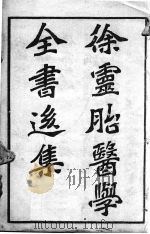 徐靈胎醫學
全書逸集